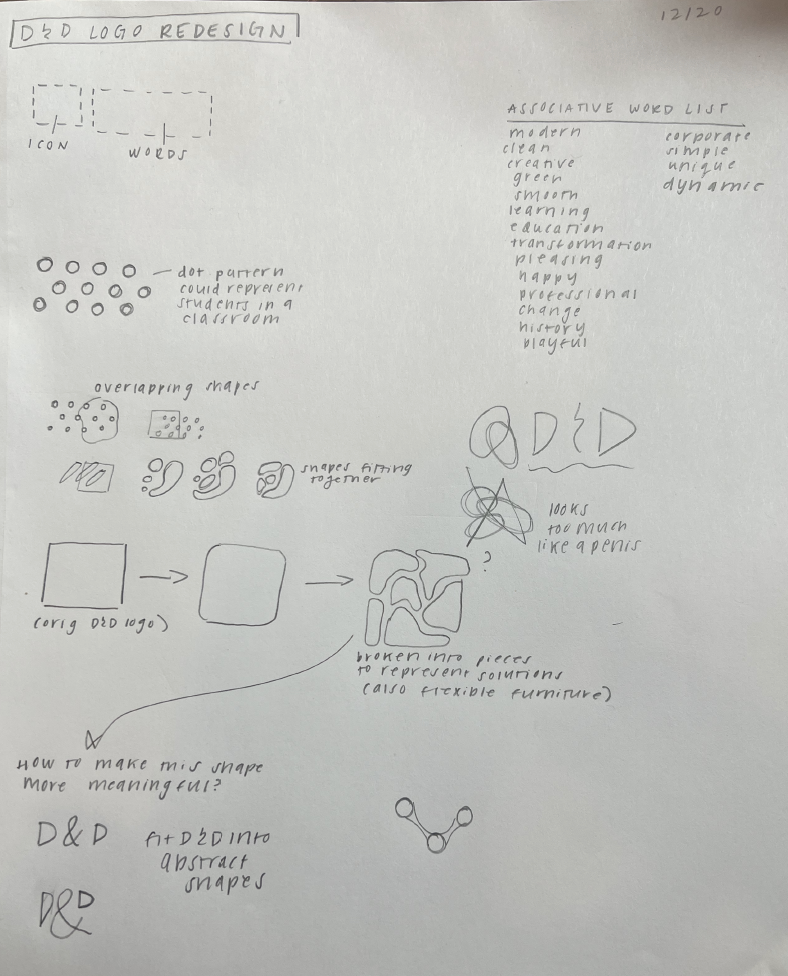 12/20
D&D LOGO REDESIGN
ICON
WORDS
ASSOCIATIVE WORD LIST
modern
clean
creative
green
smooth
learning
education
transformation
pleasing
happy
professional
change
history
playful
corporate
simple
unique
dynamic
dot pattern
could represent
students in a
classroom
overlapping shapes
shapes fitting
together
D&D
looks
too much
like a penis
(orig D&D logo)
?
broken into pieces
to represent solutions
(also flexible furniture)
HOW TO MAKE THIS SHAPE
more meaningful?
D&D
fit D&D INTO
abstract
shapes
D&D